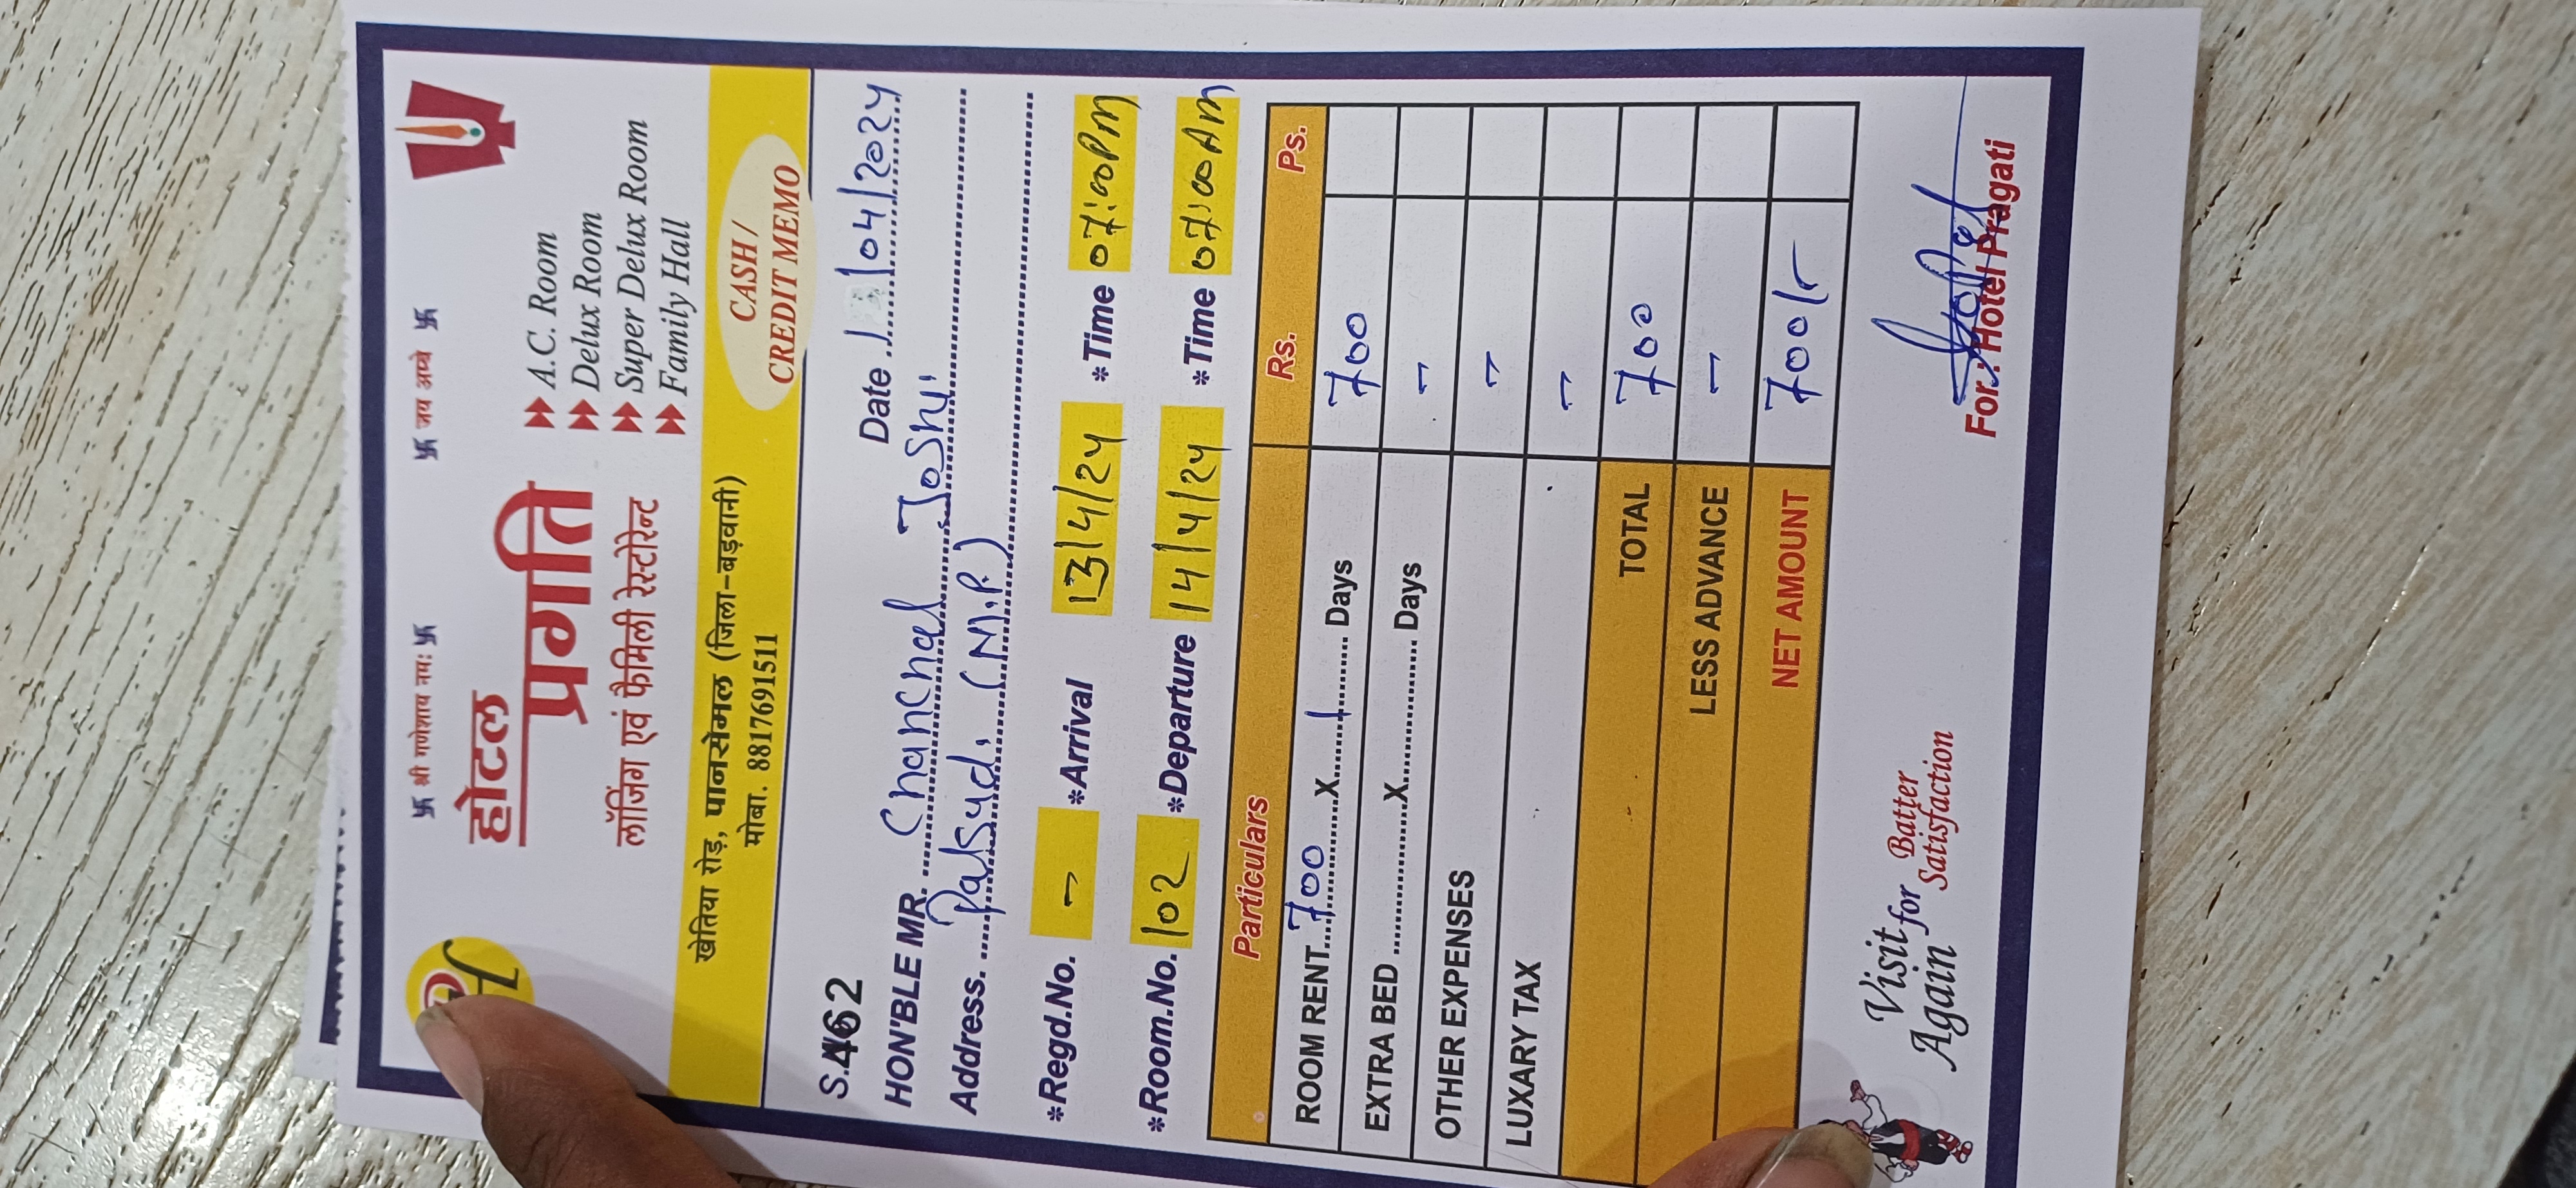 卐 श्री गणेशाय नमः 卐 卐 जय अम्बे 卐
होटल
प्रगति
लॉजिंग एवं फैमिली रेस्टोरेन्ट
A.C. Room
Delux Room
Super Delux Room
Family Hall
खेतिया रोड़, पानसेमल (जिला-बड़वानी)
मोबा. 8817691511
CASH /
CREDIT MEMO
S. 462 Date 1 /04/2024
HON'BLE MR. Chanchal Joshi
Address. Palsud. (M.P.)
*Regd.No. - *Arrival 13/4/24 *Time 07:00PM
*Room.No. 102 *Departure 14/4/24 *Time 07:00AM
Particulars Rs. Ps.
ROOM RENT 700 X 1 Days 700
EXTRA BED X Days -
OTHER EXPENSES -
LUXARY TAX -
TOTAL 700
LESS ADVANCE -
NET AMOUNT 700/-
Visit for Batter
Again Satisfaction
For.: Hotel Pragati